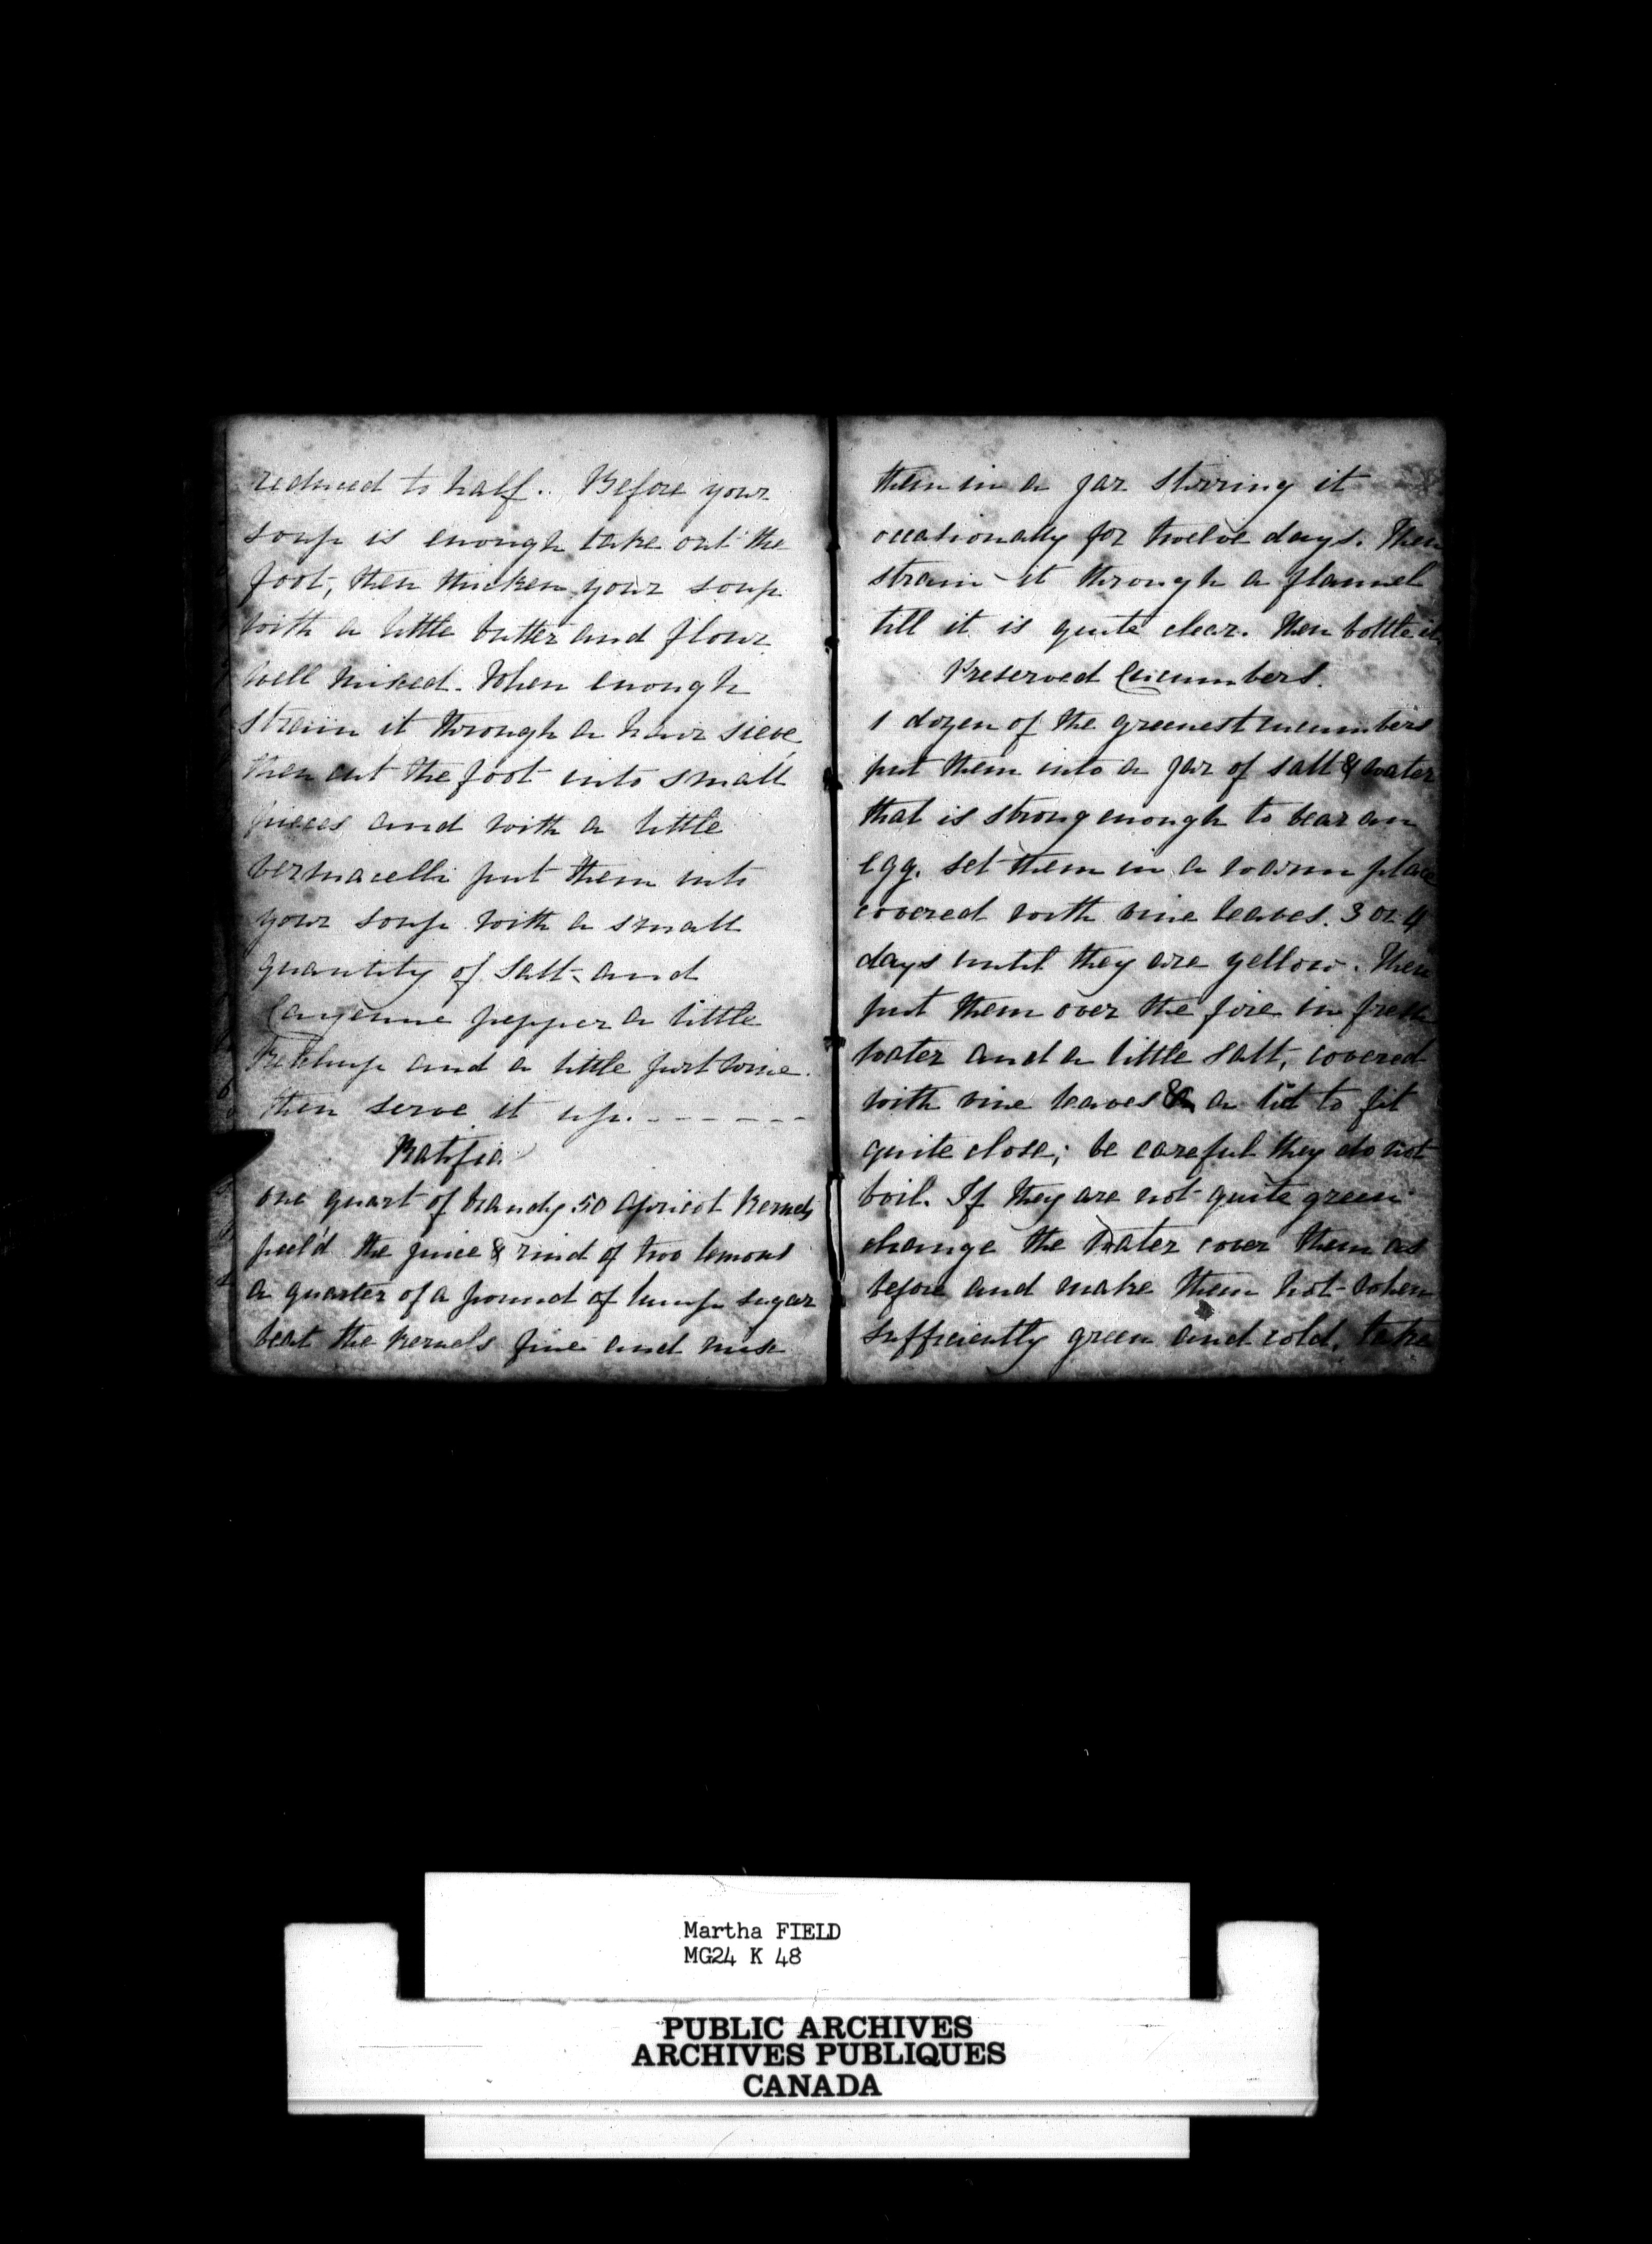 reduced to half. Before your
soup is enough take out the
foot, then thicken your soup
with a little butter and flour
well mixed. When enough
strain it through a hair sieve,
then cut the foot into small
pieces and with a little
vermacelli put them into
your soup with a small
quantity of salt and
Cayenne pepper a little
Ketchup and a little port wine.
then serve it up. - - - - - -
Ratifia
one quart of brandy 50 apricot kernels
peel'd the juice & rind of two lemons
a quarter of a pound of lump sugar
beat the kernels fine and mix
them in a jar stirring it
occationally for twelve days. Then
strain it through a flannel
till it is quite clear. Then bottle it
Preserved Cucumbers.
1 dozen of the greenest cucumbers
put them into a jar of salt & water
that is strong enough to bear an
egg. set them in a warm place
covered with vine leaves. 3 or 4
days until they are yellow. Then
put them over the fire in fresh
water and a little salt, covered
with vine leaves & a lid to fit
quite close; be careful they do not
boil. If they are not quite green
change the water cover them as
before and make them hot- when
sufficiently green and cold, take
Martha FIELD
MG24 K 48
PUBLIC ARCHIVES
ARCHIVES PUBLIQUES
CANADA